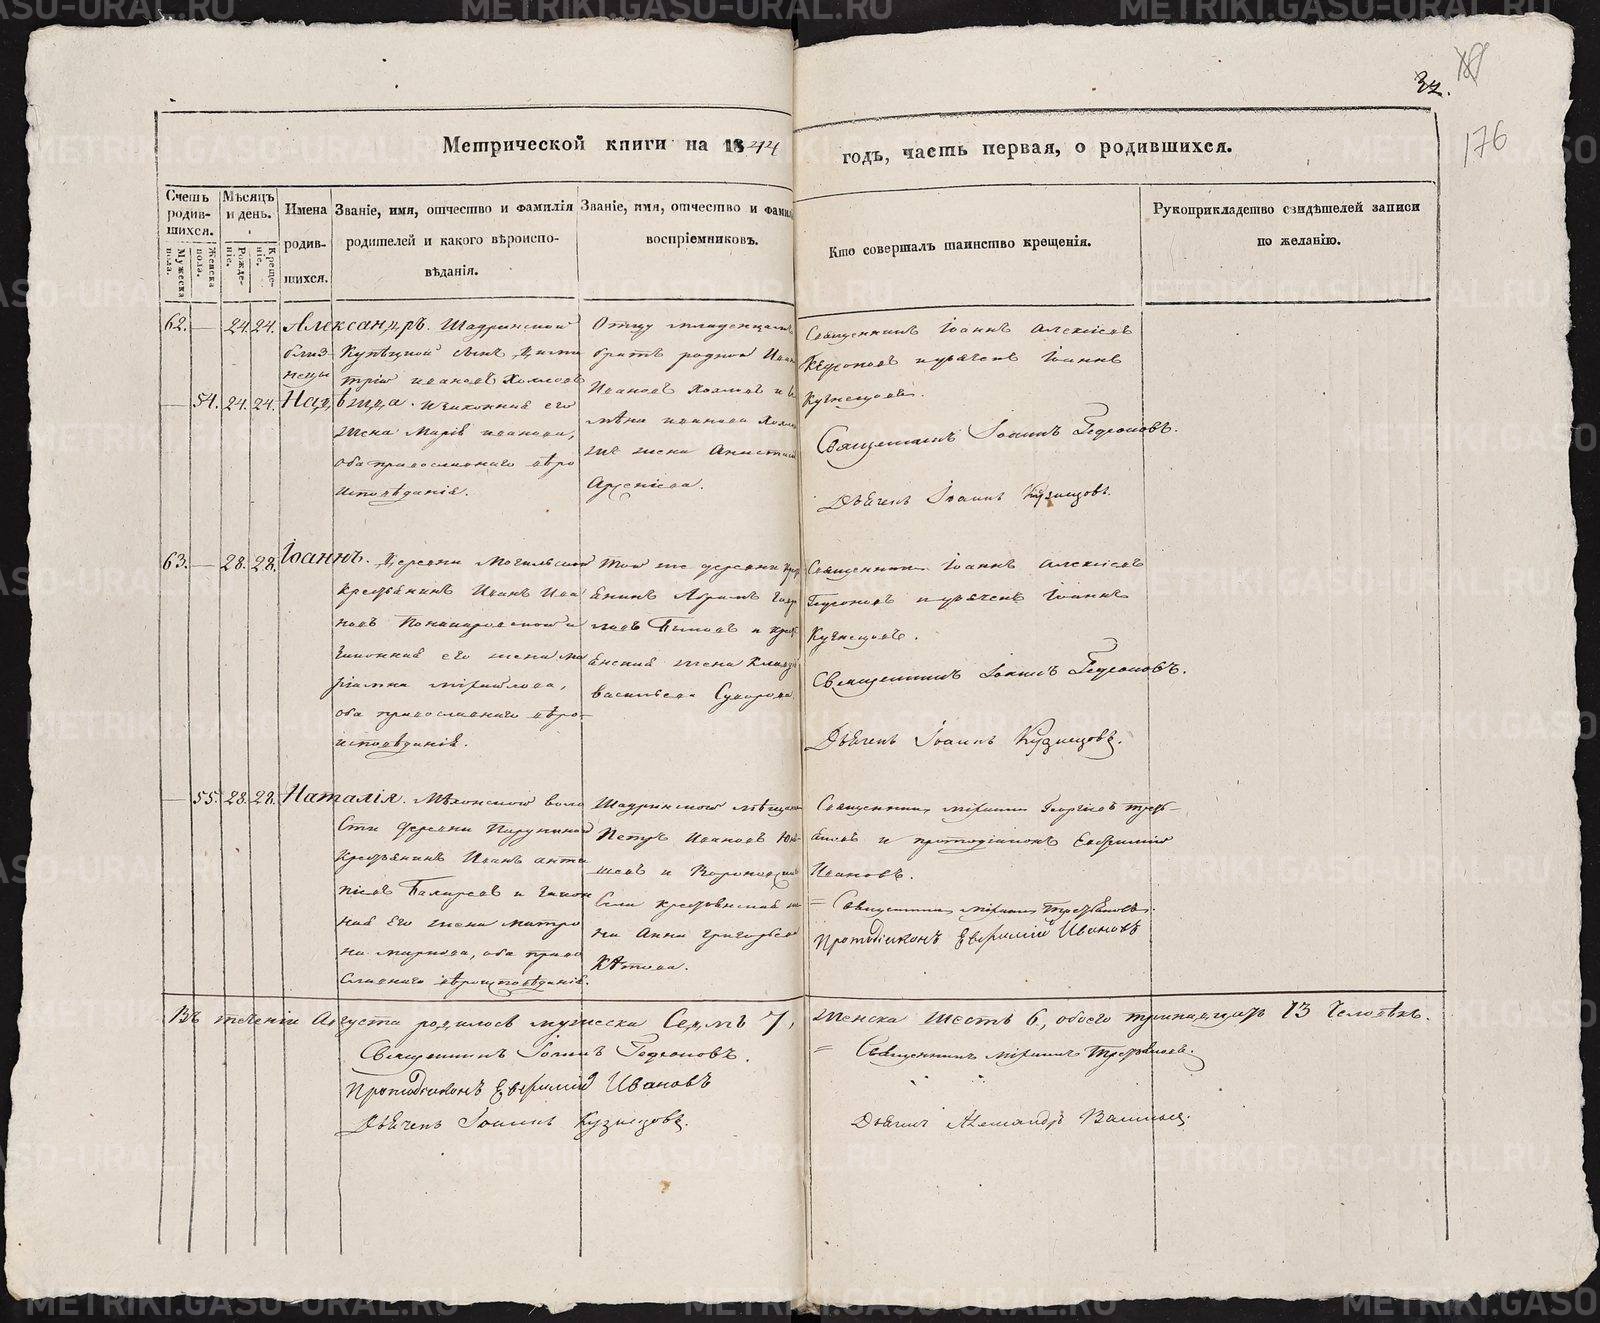 32.
176
Метрической книги на 1844 годъ, часть первая, о родившихся.
Счетъ родив-шихся.
Мужеска пола.
Женска пола.
Мѣсяцъ и день.
Рожде-ніе.
Креще-ніе.
Имена родив-шихся.
Званіе, имя, отчество и фамилія
родителей и какого вѣроиспо-
вѣданія.
Званіе, имя, отчество и фами
воспріемниковъ.
Кто совершалъ таинство крещенія.
Рукоприкладство свидѣтелей записи
по желанію.
62. — 24. 24. Александръ.
близ
нецы
— 54. 24. 24. Надѣжда.
Шадринской
Купецкой сынъ Дими
трій Ивановъ Холмовъ
и законная его
жена Марія Иванова,
оба православнаго вѣро
исповѣданія.
Отцу младенцамъ
братъ родной Иван
Ивановъ
жена Анастасі
Арсеніева.
Священникъ Іоаннъ Алексіевъ
Гедеоновъ и дьячекъ Іоаннъ
Кузнецовъ.
Священникъ Іоаннъ Гедеоновъ.
Дьячекъ Іоаннъ Кузнецовъ.
63. — 28. 28. Іоаннъ.
Деревни Могильской
крестьянинъ Иванъ Ива
новъ и
законная его жена Ма
ріамна Михайлова,
оба православнаго вѣро-
исповѣданія.
Той же деревни крес
янинъ Абрамъ Гавр
ловъ Быковъ и крес
янская жена Клавді
Васильева Суворова
Священникъ Іоаннъ Алексіевъ
Гедеоновъ и дьячекъ Іоаннъ
Кузнецовъ.
Священникъ Іоаннъ Гедеоновъ.
Дьячекъ Іоаннъ Кузнецовъ.
— 55. 28. 28. Наталія.
Мѣхонской воло
сти деревни
крестьянинъ Иванъ Анти
піевъ и закон
ная его жена Матро
на Маркова, оба право
славнаго вѣроисповѣданія.
Шадринской мѣщани
Петръ Ивановъ
и
села крестьянская же
на Анна Григорьева
Священникъ Михаилъ Георгіевъ Треть-
яковъ и протодіаконъ Евфимій
Ивановъ.
= Священникъ Михаилъ Третьяковъ.
Протодіаконъ Евфимій Ивановъ
Въ теченіи Августа родилось мужеска Седмь 7, женска шесть 6, обоего тринадцать 13 человѣкъ.
Священникъ Іоаннъ Гедеоновъ.
= Священникъ Михаилъ Третьяковъ.
Протодіаконъ Евфимій Ивановъ
Дьячекъ Іоаннъ Кузнецовъ.
Дьячекъ Александръ
METRIKI.GASO-URAL.RU